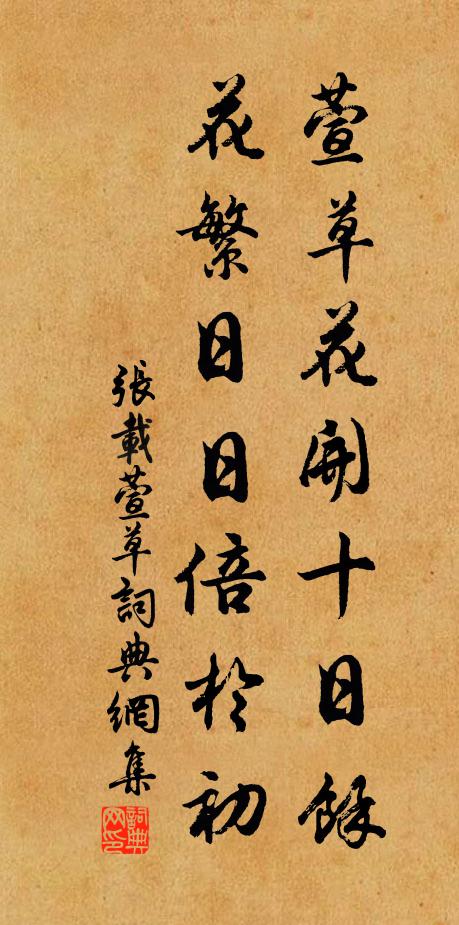 萱草花開十日餘
花繁日日倍於初
張載萱草詞典網集
詞典
网印